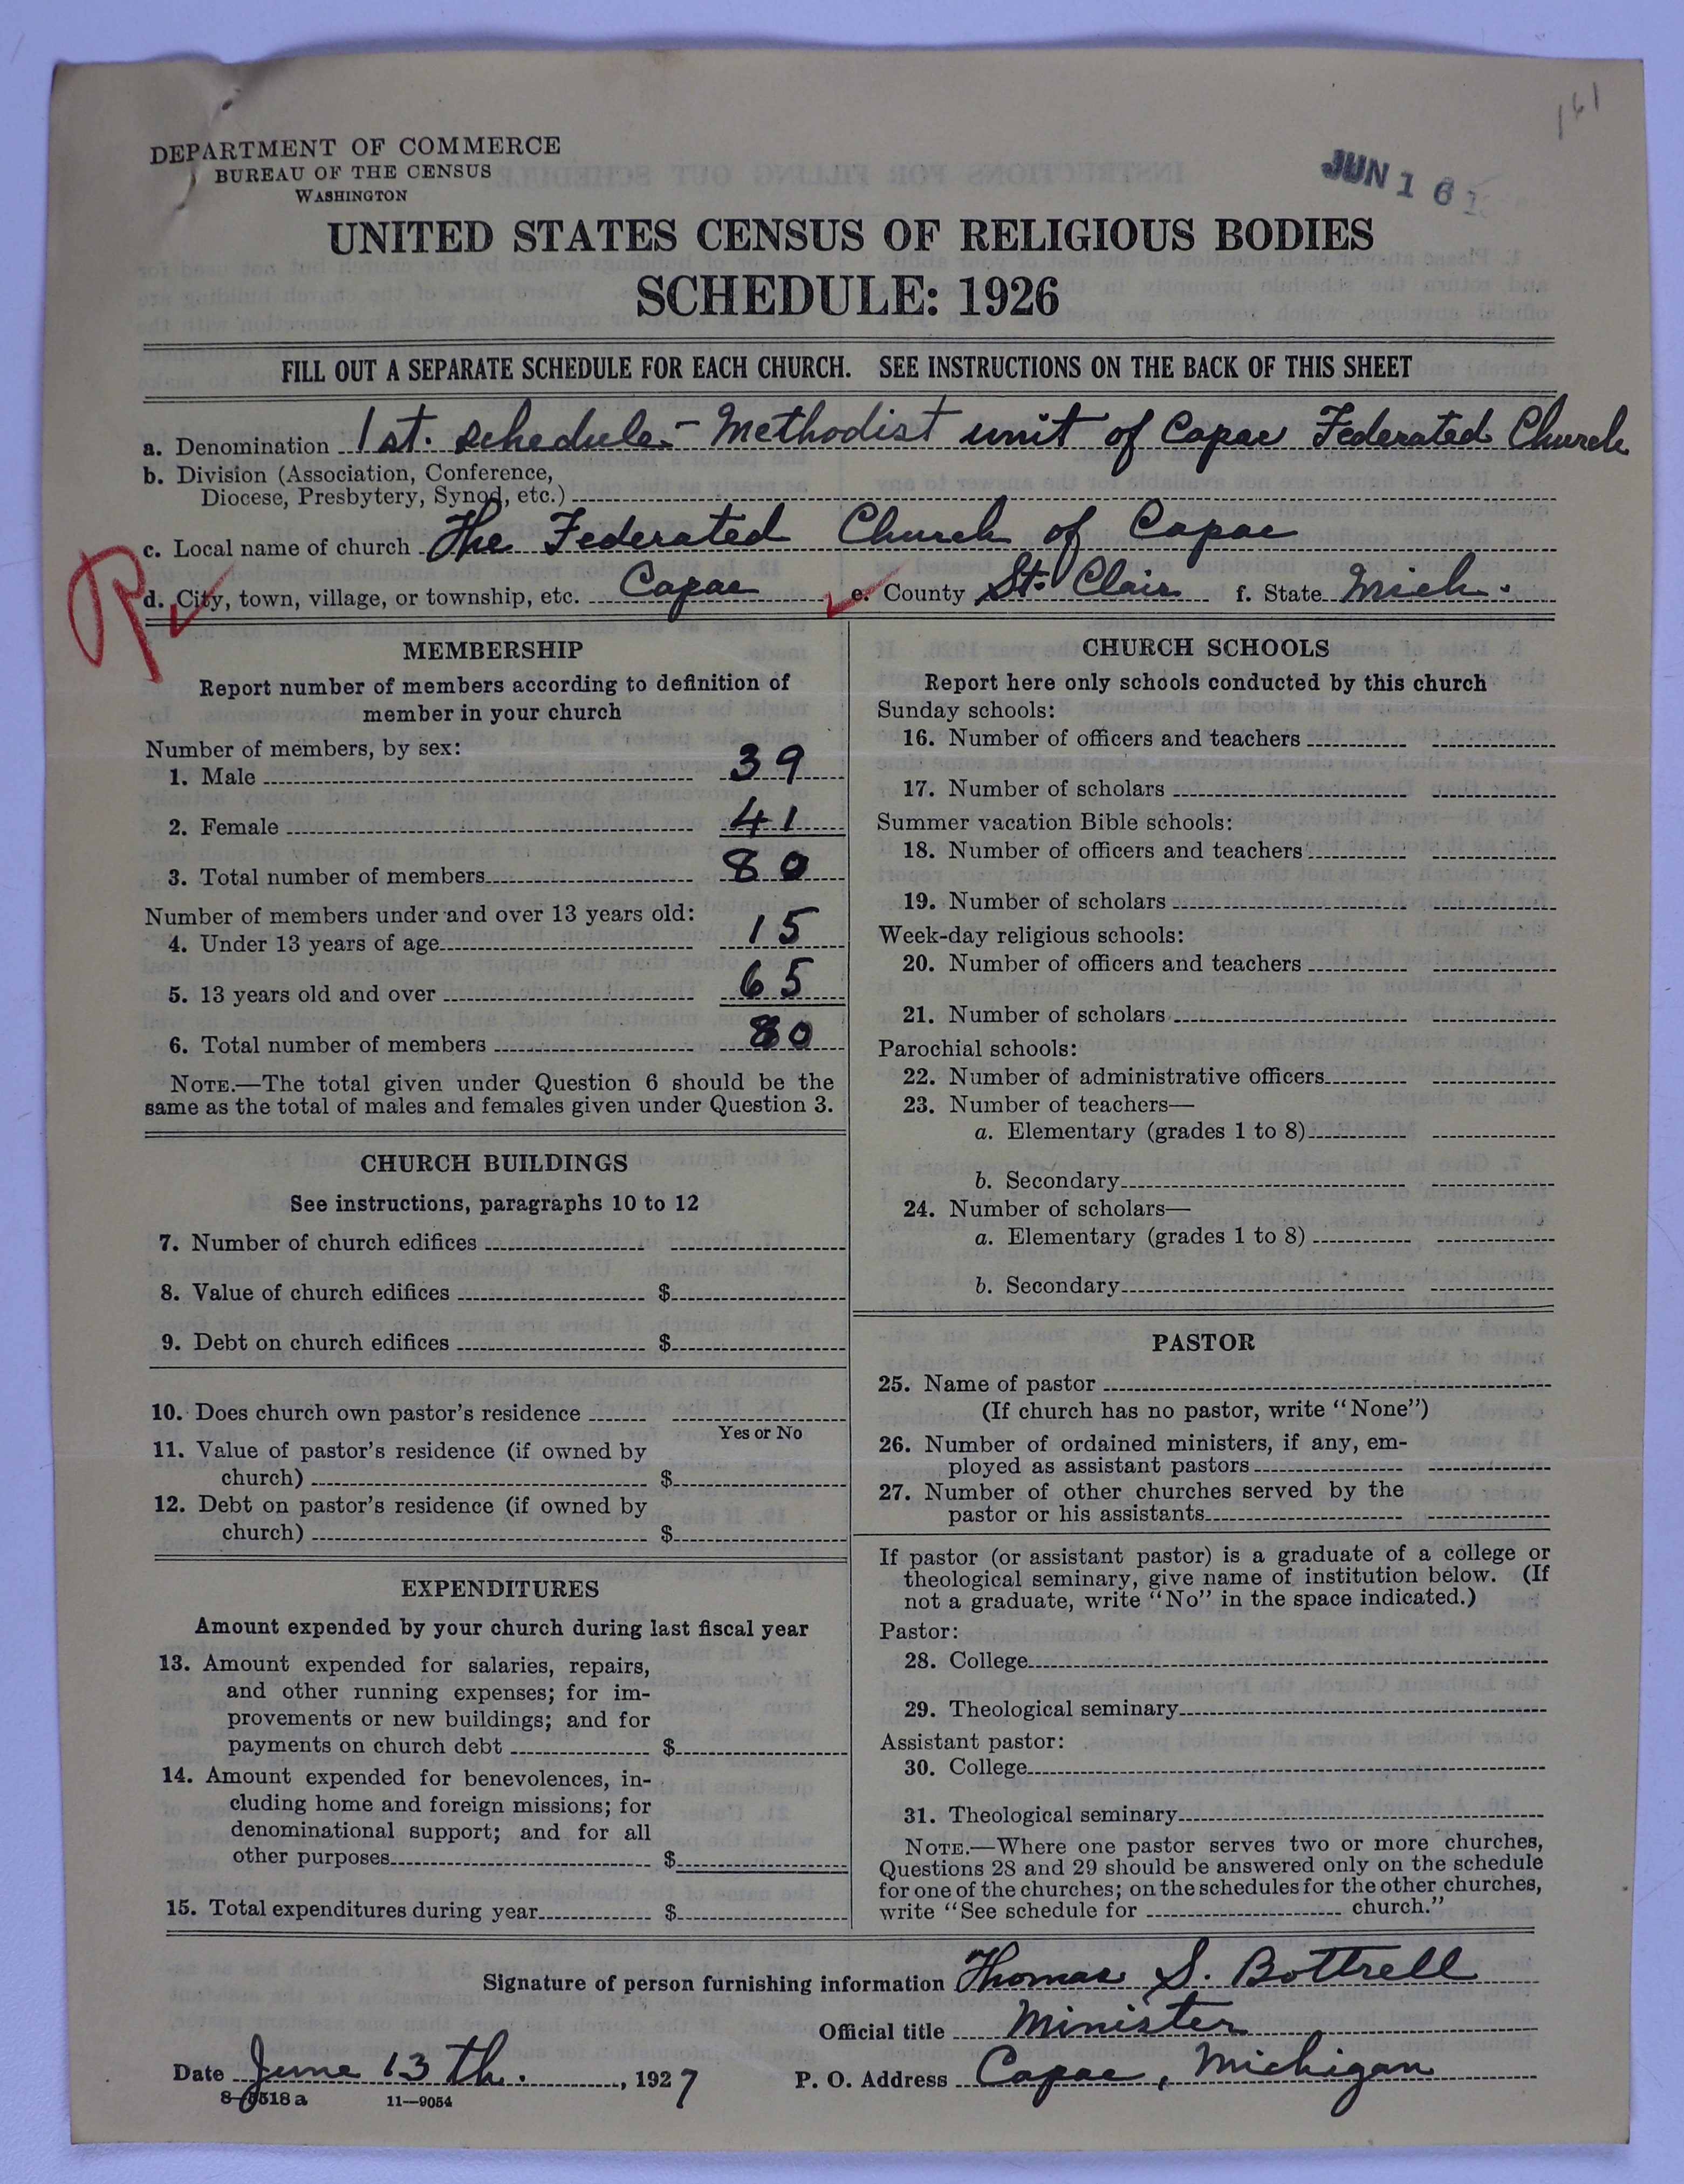 161
DEPARTMENT OF COMMERCE
BUREAU OF THE CENSUS
WASHINGTON
JUN 16
UNITED STATES CENSUS OF RELIGIOUS BODIES
SCHEDULE: 1926
FILL OUT A SEPARATE SCHEDULE FOR EACH CHURCH. SEE INSTRUCTIONS ON THE BACK OF THIS SHEET
a. Denomination 1st. schedule - Methodist unit of Capac Federated Church
b. Division (Association, Conference,
Diocese, Presbytery, Synod, etc.)
c. Local name of church The Federated Church of Capac
d. City, town, village, or township, etc. Capac e. County St. Clair f. State Mich.
MEMBERSHIP
Report number of members according to definition of
member in your church
Number of members, by sex:
1. Male 39
2. Female 41
3. Total number of members 80
Number of members under and over 13 years old:
4. Under 13 years of age 15
5. 13 years old and over 65
6. Total number of members 80
NOTE.—The total given under Question 6 should be the
same as the total of males and females given under Question 3.
CHURCH BUILDINGS
See instructions, paragraphs 10 to 12
7. Number of church edifices
8. Value of church edifices $
9. Debt on church edifices $
10. Does church own pastor's residence
Yes or No
11. Value of pastor's residence (if owned by
church) $
12. Debt on pastor's residence (if owned by
church) $
EXPENDITURES
Amount expended by your church during last fiscal year
13. Amount expended for salaries, repairs,
and other running expenses; for im-
provements or new buildings; and for
payments on church debt $
14. Amount expended for benevolences, in-
cluding home and foreign missions; for
denominational support; and for all
other purposes $
15. Total expenditures during year $
CHURCH SCHOOLS
Report here only schools conducted by this church
Sunday schools:
16. Number of officers and teachers
17. Number of scholars
Summer vacation Bible schools:
18. Number of officers and teachers
19. Number of scholars
Week-day religious schools:
20. Number of officers and teachers
21. Number of scholars
Parochial schools:
22. Number of administrative officers
23. Number of teachers—
a. Elementary (grades 1 to 8)
b. Secondary
24. Number of scholars—
a. Elementary (grades 1 to 8)
b. Secondary
PASTOR
25. Name of pastor
(If church has no pastor, write "None")
26. Number of ordained ministers, if any, em-
ployed as assistant pastors
27. Number of other churches served by the
pastor or his assistants
If pastor (or assistant pastor) is a graduate of a college or
theological seminary, give name of institution below. (If
not a graduate, write "No" in the space indicated.)
Pastor:
28. College
29. Theological seminary
Assistant pastor:
30. College
31. Theological seminary
NOTE.—Where one pastor serves two or more churches,
Questions 28 and 29 should be answered only on the schedule
for one of the churches; on the schedules for the other churches,
write "See schedule for church."
Signature of person furnishing information Thomas S. Bottrell
Official title Minister
Date June 13th., 1927 P. O. Address Capac, Michigan
8-5518a 11—9054